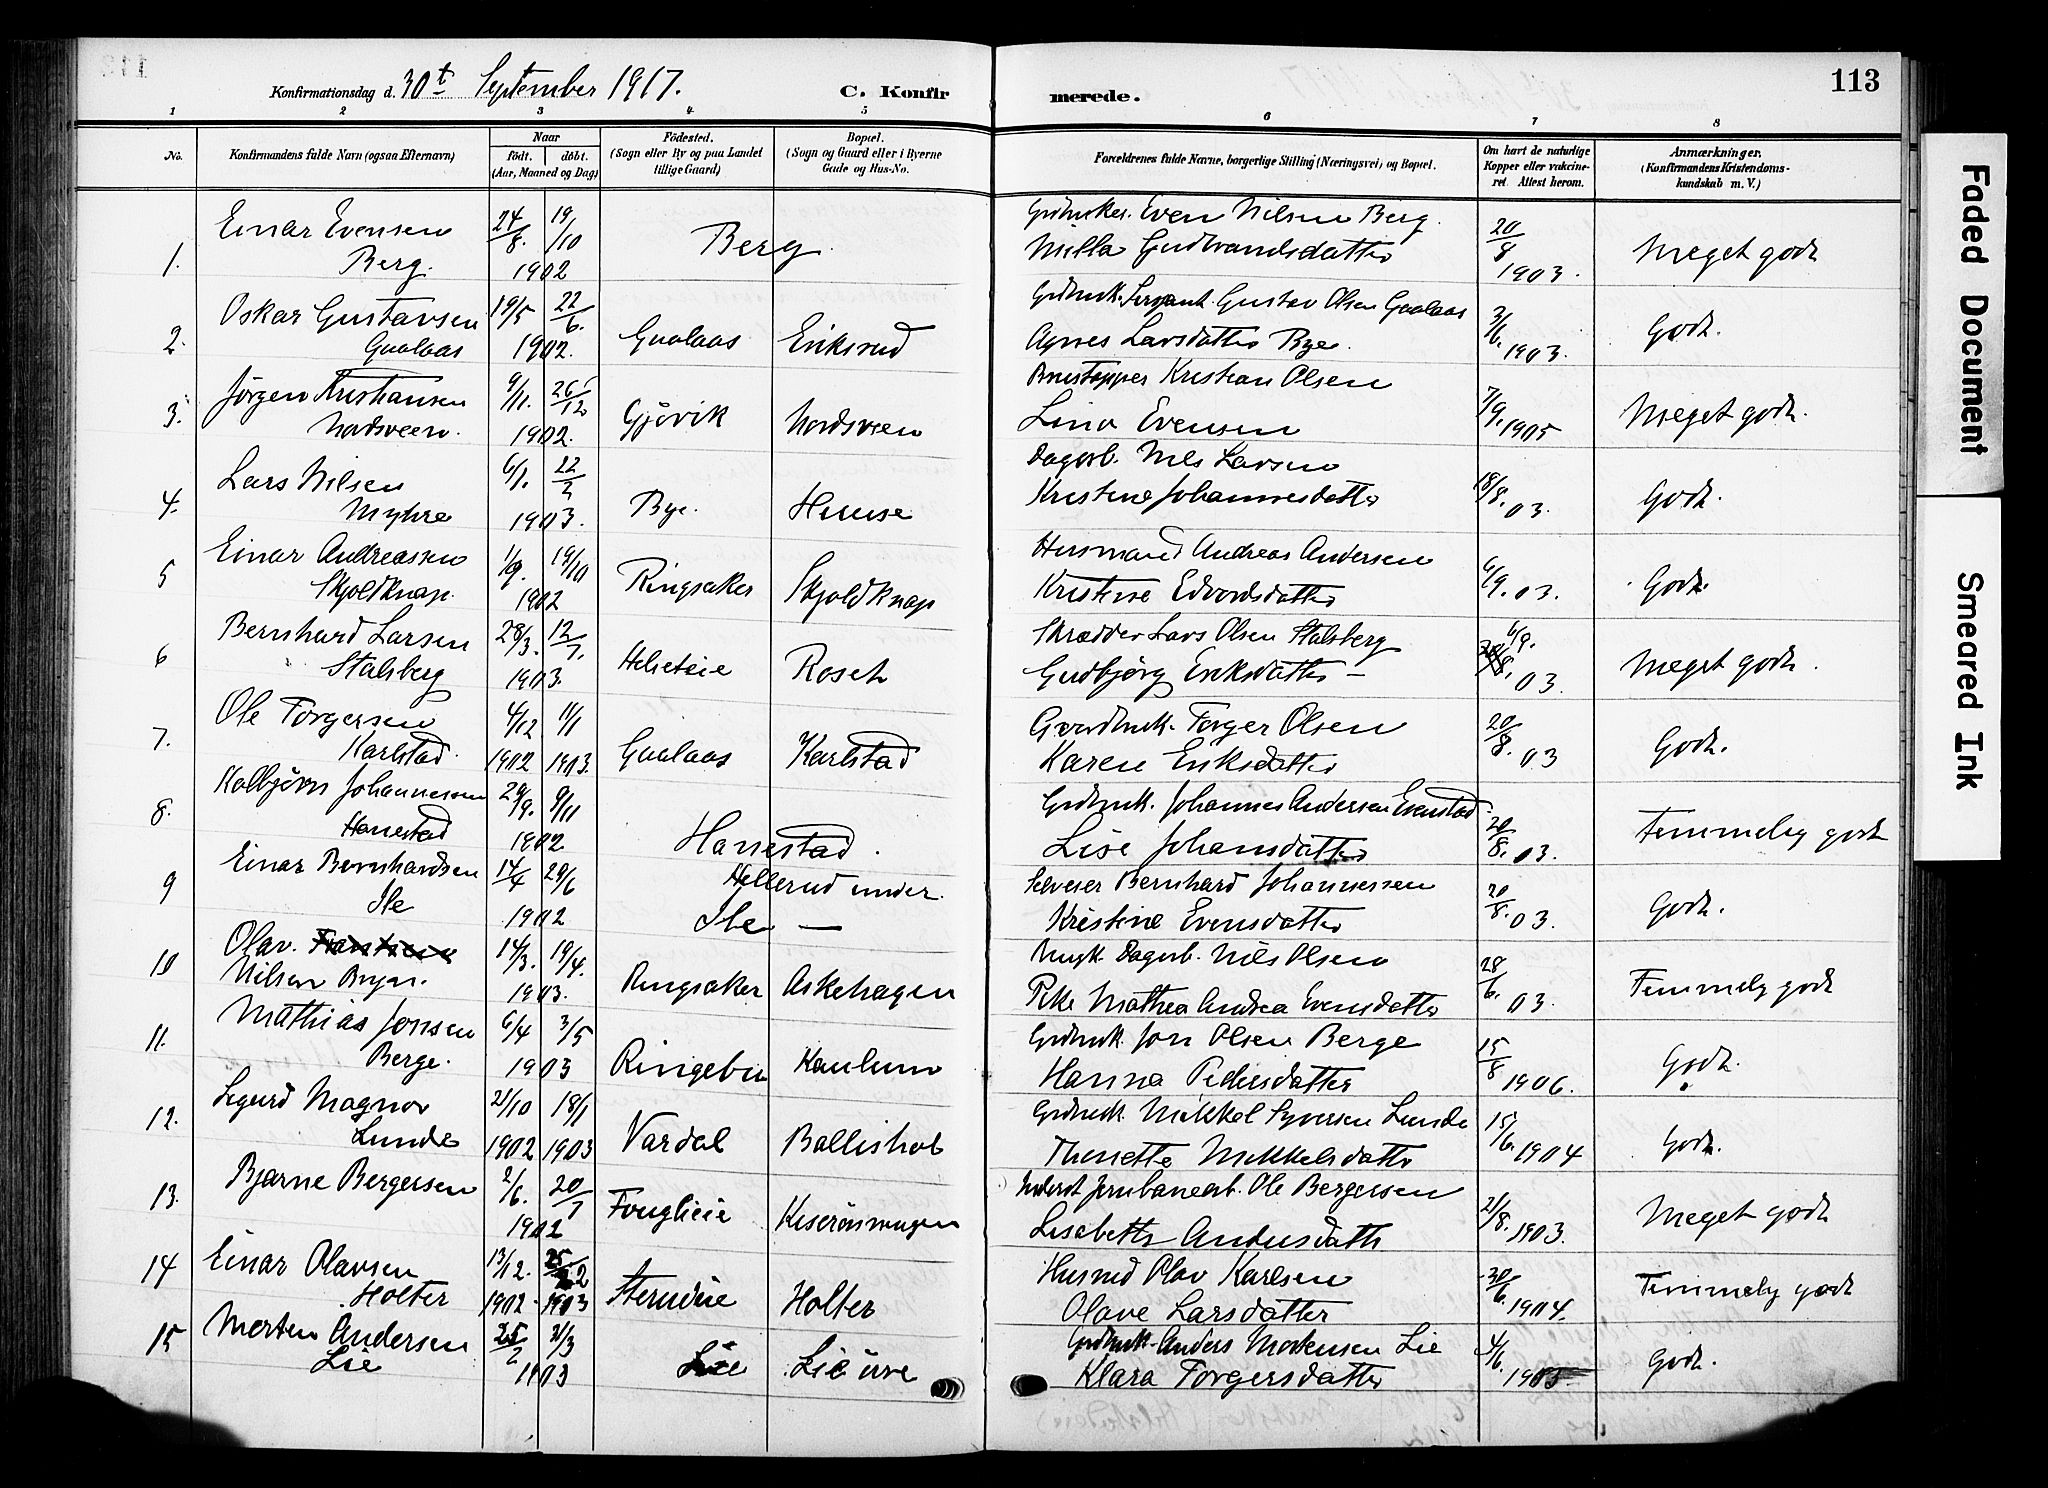 113
Konfirmationsdag d. 30t September 1917. C. Konfirmerede.
1 2 3 4 5 6 7 8
No. Konfirmandens fulde Navn (ogsaa Efternavn) Naar födt. döbt. (Aar, Maaned og Dag) Födested. (Sogn eller By og paa Landet tillige Gaard) Bopæl. (Sogn og Gaard eller i Byerne Gade og Hus-No. Forældrenes fulde Navne, borgerlige Stilling (Næringsvei) og Bopæl. Om havt de naturlige Kopper eller vakcineret. Attest herom. Anmærkninger. (Konfirmandens Kristendomskundskab m. V.)
1. Einar Evensen 24/8. 19/10 Berg. Even Nilsen Berg. 20/8
Berg. 1902 Milla Gudbrandsdatter 1903. Meget godt
2. Oskar Gustavsen 19/5 22/6. Gaalaas Eriksrud Gustav Olsen Gaalaas 3/6. Godt.
Gaalaas 1902. Agnes Larsdatter Bye. 1903.
3. Jörgen Kristiansen 9/11. 26/12 Gjövik Nordsveen Kristian Olsen 7/9. Meget godt.
Nordsveen. 1902. Lina Evensen 1905
4. Lars Nilsen 6/1. 22/2 Bye. Dagarb. Nils Larsen 18/8. Godt.
Myhre 1903. Kristine Johannesdatter 03.
5 Einar Andreassen 1/9. 19/10 Ringsaker Skjoldknap Husmand Andreas Andersen 6/9. Godt.
Skjoldknap. 1902 Kristine Edvardsdatter 03.
6 Bernhard Larsen 28/3. 12/7. Roset Skrædder Lars Olsen Stalsberg 6/9.
Stalsberg 1903. Gudbjörg Eriksdatter – 03. Meget godt.
7. Ole Torgersen 4/12 11/1 Gaalaas Karlstad Gaardbruk. Torger Olsen 20/8. Godt.
Karlstad. 1902 1903. Karen Eriksdatter 03
8. Kolbjörn Johannessen 29/9. 9/11 Hanestad. Grdbruk. Johannes Andersen Evenstad 20/8.
Hanestad 1902 Lise Johansdatter 03. Temmelig godt
9 Einar Bernhardsen 14/4 29/6 Hellerud under Selveier Bernhard Johannessen 20/8. Godt.
Ile 1902 Ile – Kristine Evensdatter 03.
10 Olav. 14/3. 19/4. Ringsaker Askehagen Dagarb. Nils Olsen 28/6. Temmelig godt
Nilsen 1903. Pike Mathea Andrea Evensdatter 03.
11. Mathias Jonsen 6/4 3/5 Ringebu Grdbruk. Jon Olsen Berge 15/8 Godt.
Berge. 1903 Hanna Pedersdatter 1906.
12. Sigurd Magnar 21/10 18/1 Vardal Ballishol Grdbruk. Mikkel Syversen Lunde 15/6. Godt.
Lunde 1902 1903 Thonette Mikkelsdatter 1904
13. Bjarne Bergersen 2/6. 20/7 Jernbanearb. Ole Bergersen 21/8. Meget godt
1902 Lisabeth Andersdatter 1903.
14 Einar Olavsen 13/12. 25/2 Holter Olav Karlsen 30/6 Temmelig godt
Holter 1902. 1903 Olave Larsdatter 1904.
15 Morten Andersen 25/2 2/3 Lie Lie övre Grdbruk. Anders Mortensen Lie 4/6. Godt.
Lie 1903 Klara Torgersdatter 1905
Faded Document
Smeared Ink